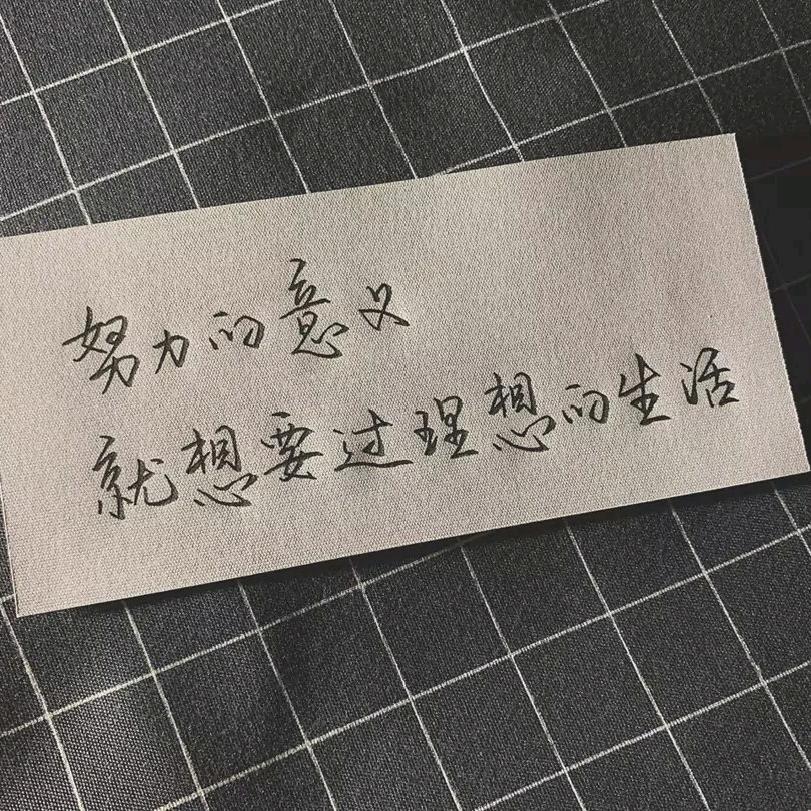 努力的意义
就想要过理想的生活